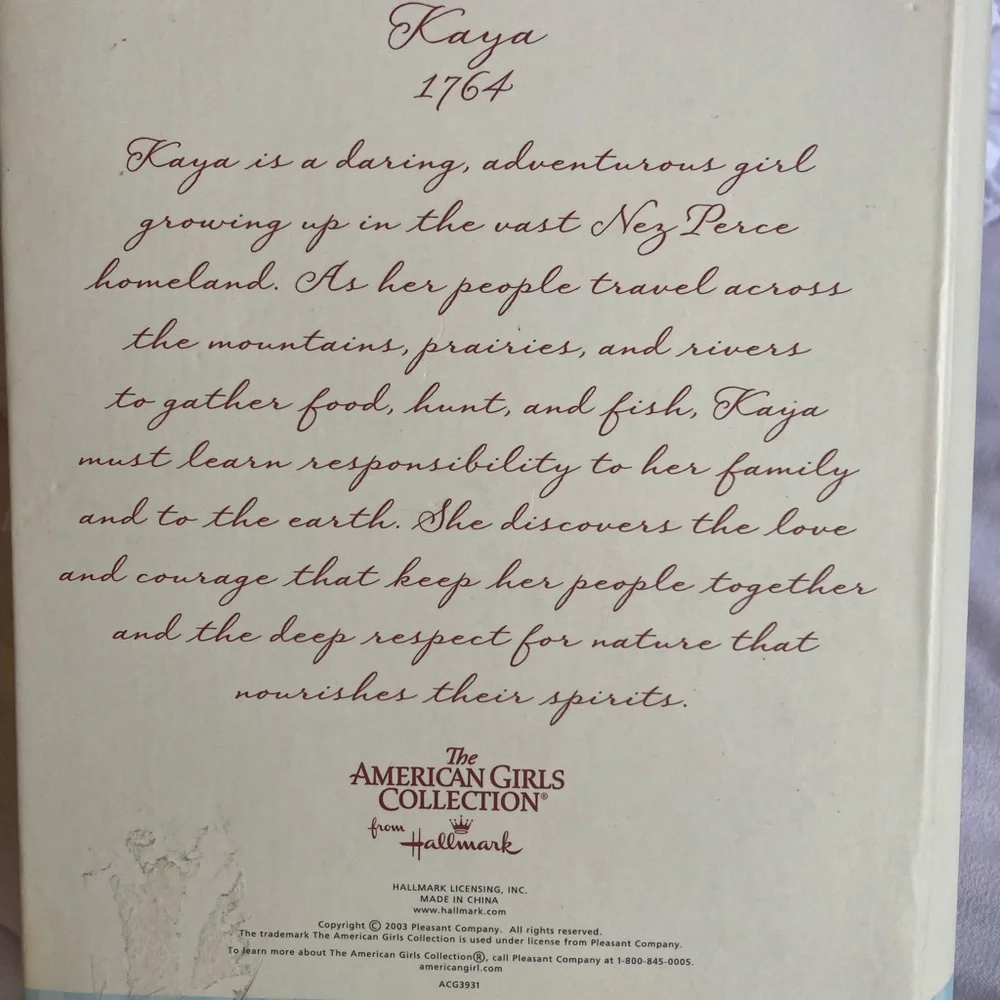 Kaya
1764
Kaya is a daring, adventurous girl
growing up in the vast Nez Perce
homeland. As her people travel across
the mountains, prairies, and rivers
to gather food, hunt, and fish, Kaya
must learn responsibility to her family
and to the earth. She discovers the love
and courage that keep her people together
and the deep respect for nature that
nourishes their spirits.
The
AMERICAN GIRLS
COLLECTION®
from Hallmark
HALLMARK LICENSING, INC.
MADE IN CHINA
www.hallmark.com
Copyright © 2003 Pleasant Company. All rights reserved.
The trademark The American Girls Collection is used under license from Pleasant Company.
To learn more about The American Girls Collection®, call Pleasant Company at 1-800-845-0005.
americangirl.com
ACG3931